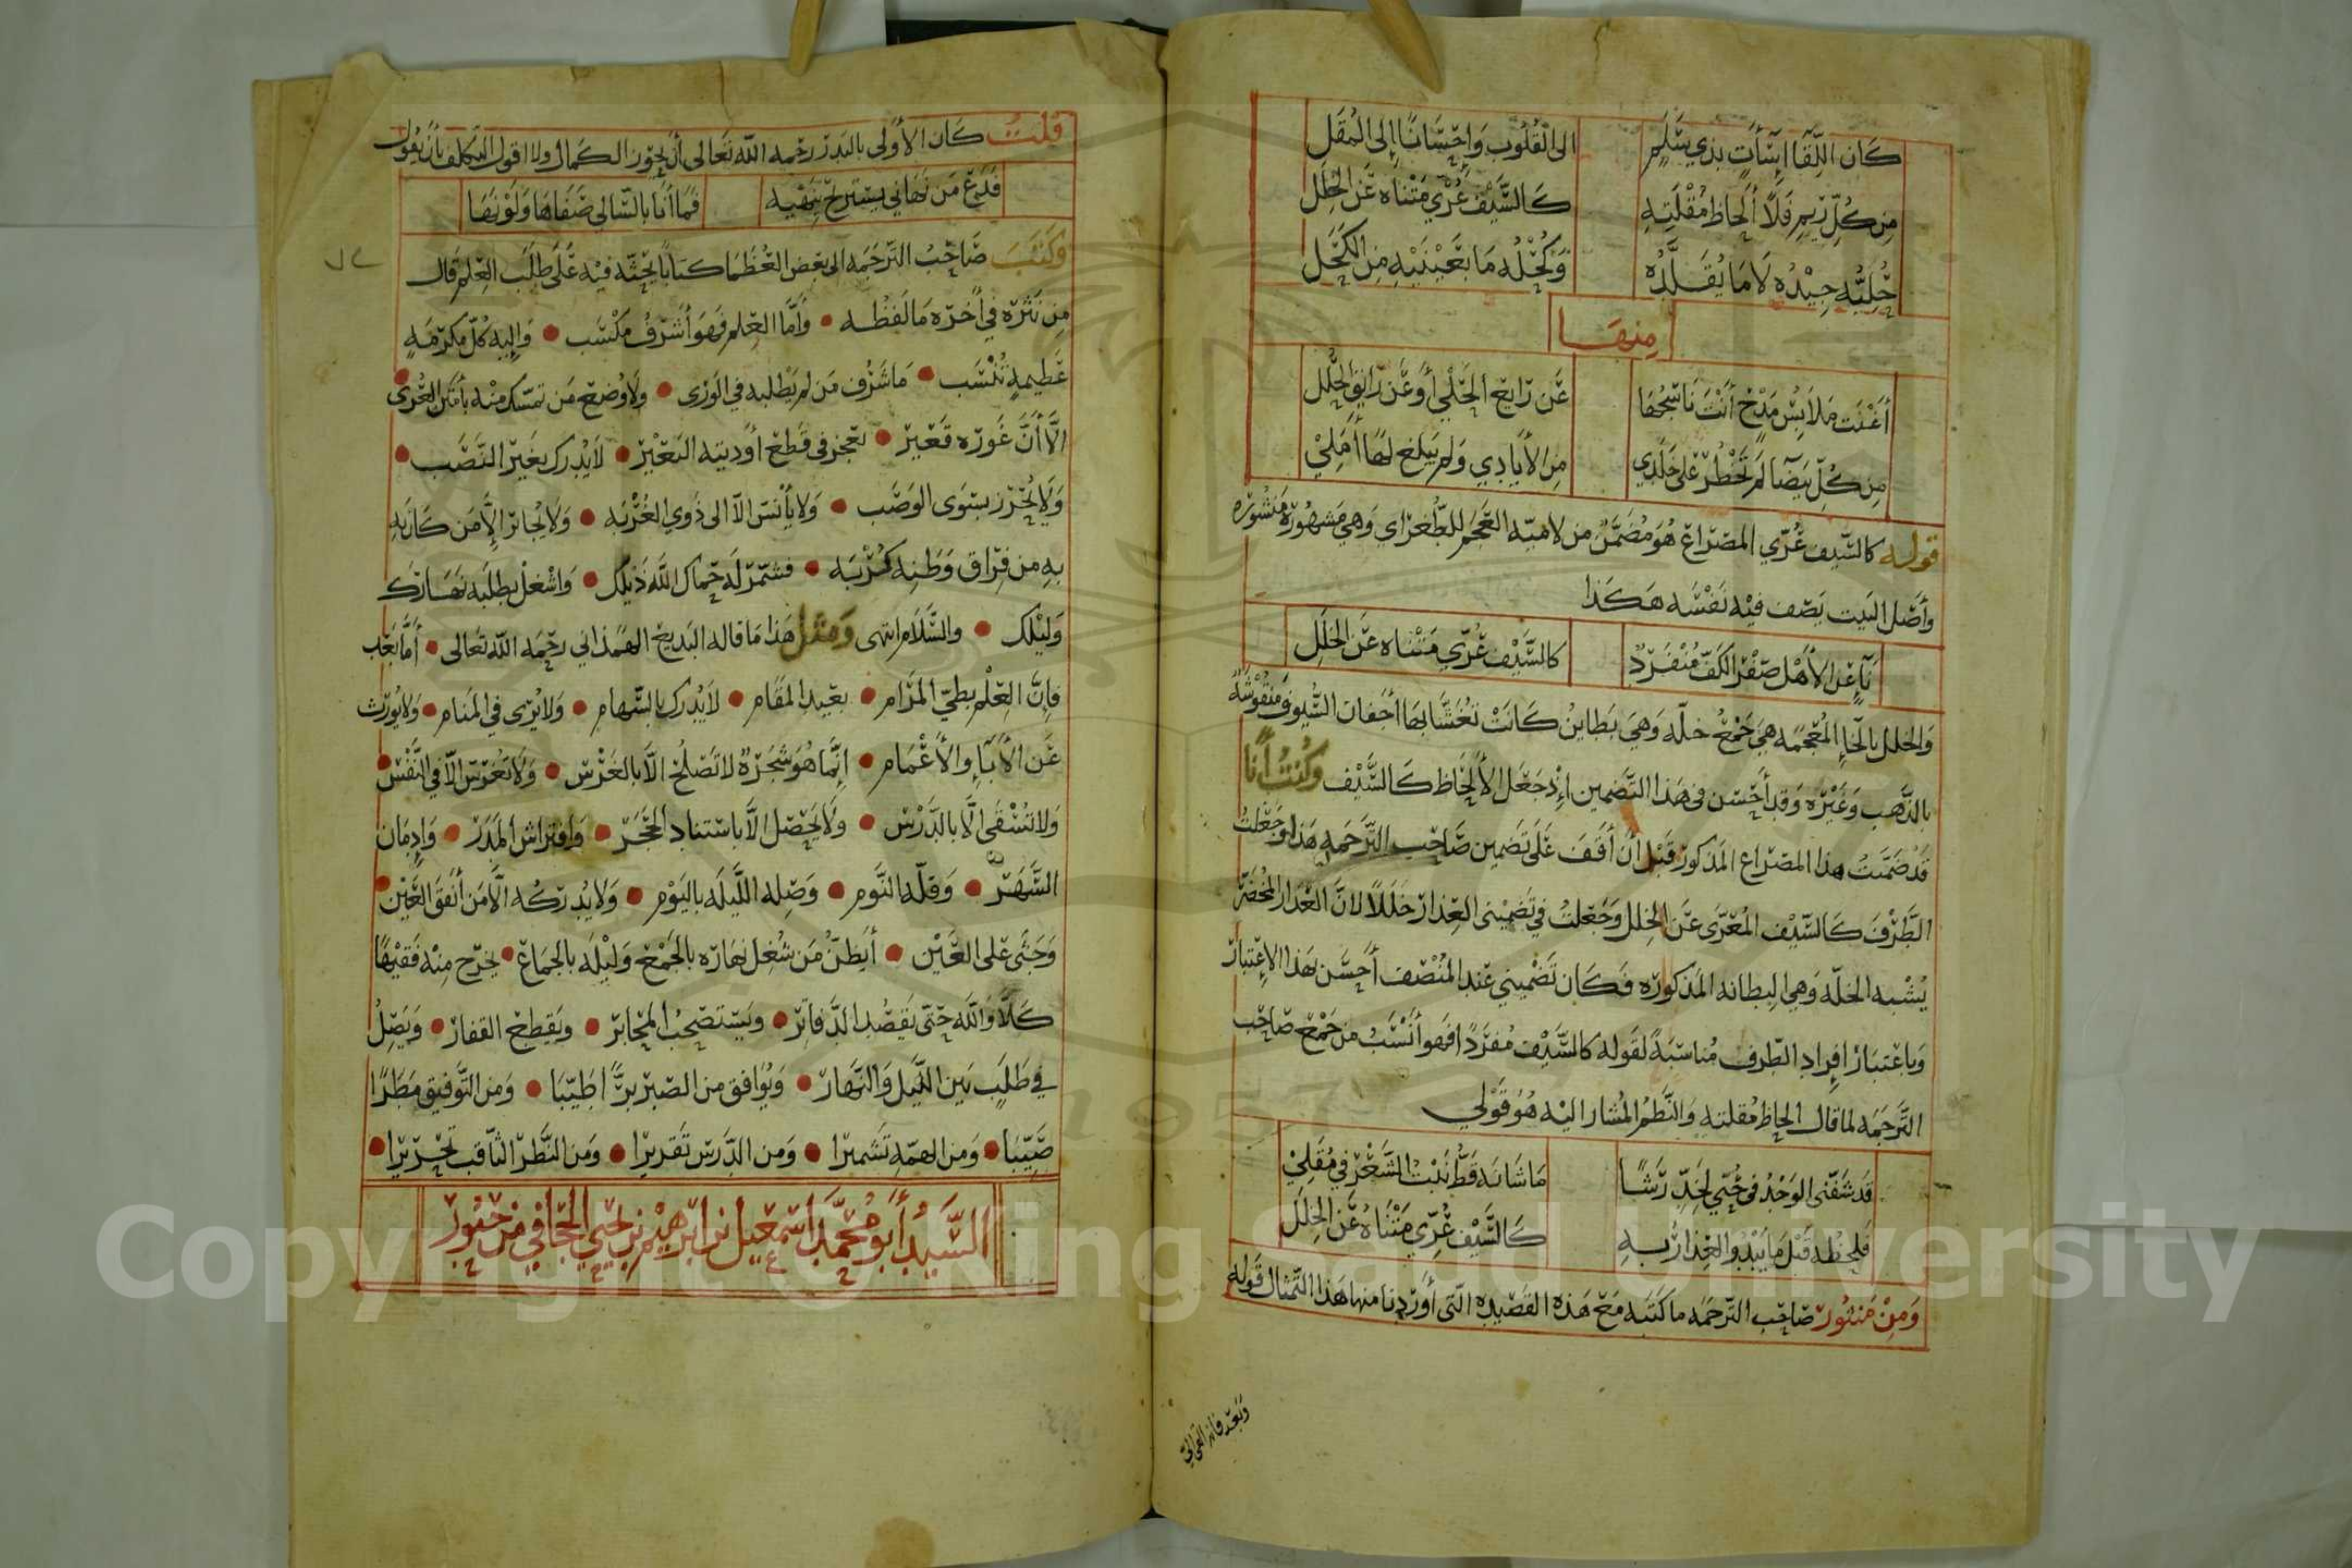 كان اللقا إساءات بذي سلم إلى القلوب وإحسانا إلى المقل
من كل ريم فلا ألحاظ مقلته كالسيف عري متناه عن الخلل
حليه جيده لا ما يقلده وكحله ما بعينيه من الكحل
منها
أغنت ملابس مدح أنت ناسجها عن رايع الحلي أو عن رايق الحلل
من كل بيضا لم تخطر على خلدي من الأيادي ولم يبلغ لها أملي
قوله كالسيف عري المصراع هو مضمن من لامية العجم للطغراي وهي مشهورة منشوره
وأصل البيت يصف فيه نفسه هكذا
نآء عن الأهل صفر الكف منفرد كالسيف عري متناه عن الخلل
والخلل بالخاء المعجمه هي جمع خله وهي بطاين كانت تغشا بها أجفان السيوف منقوشة
بالذهب وغيره وقد أحسن في هذا التضمين إذ جعل الألحاظ كالسيف وكنت أنا
قد ضمنت هذا المصراع المذكور قبل أن أقف على تضمين صاحب الترجمه هذا وجعلت
الطرف كالسيف المعرى عن الخلل وجعلت في تضميني العذار خللا لان العذار المخضر
يشبه الخله وهي البطانه المذكوره فكان تضميني عند المنصف أحسن بهذا الاعتبار
وباعتبار افراد الطرف مناسبة لقوله كالسيف مفردا فهو أنسب من جمع صاحب
الترجمه لما قال الحاظ مقلته والنظم المشار اليه هو قولي
قد شفني الوجد في حبي لخد رشا ما شانه قط نبت الشعر في مقلي
فلحظه قبل ما يبدو العذار به كالسيف عري متناه عن الخلل
ومن منثور صاحب الترجمه ما كتبه مع هذه القصيده التي أوردنا منها هذا التمثال قوله
قلت كان الأولى بالبدر رحمه الله تعالى أن يحوز الكمال ولا اقول التكلف بأن يقول
فدع من نهاني يستريح بنهيه فما أنا بالسالي صفاها ولونها
وكتب صاحب الترجمه الى بعض العظما كتابا يحثه فيه على طلب العلم قال
من نثره في أخره ما لفظه • وأما العلم فهو أشرف مكتسب • وإليه كل مكرمة
عظيمة تنتسب • ما شرف من لم يطلبه في الورى • ولا وضع من تمسك منه بأمتن العرى •
الا أن غوره قعير • تعجز في قطع أوديته العير • لا يدرك بغير النصب •
ولا يحرز بسوى الوصب • ولا يأنس الا الى ذوي الغربه • ولا يجاثر إلا من كان به
به من فراق وطنه كربه • فشمر له حماك الله ذيلك • واشغل بطلبه نهارك
وليلك • والسلام انتهى ومثل هذا ما قاله البديع الهمذاني رحمه الله تعالى • أما بعد
فإن العلم بطي المرام • بعيد المقام • لا يدرك بالسهام • ولا يرى في المنام • ولا يورث
عن الأباء والأعمام • إنما هو شجرة لا تصلح الا بالغرس • ولا تغرس الا في النفس •
ولا تسقى الا بالدرس • ولا يحصل الا باستناد الحجر • وافتراش المدر • وإدمان
السهر • وقلة النوم • وصلة الليله باليوم • ولا يدركه الا من أنفق العين •
وجثى على العين • أيظن من شغل نهاره بالجمع وليله بالجماع • يخرج منه فقيها
كلا والله حتى يقصد الدفاتر • ويستصحب المحابر • ويقطع القفار • ويصل
في طلب بين الليل والنهار • ويوافق من الصبر برا طيبا • ومن التوفيق مطرا
صيبا • ومن الهمة تشميرا • ومن الدرس تقريرا • ومن النظر الثاقب تحريرا •
السيد أبو محمد اسمعيل بن ابرهيم بن يحيى الحجافي من حبور
Copyright © King Saud University
1957